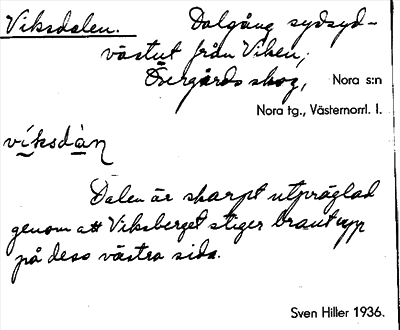 Viksdalen. Dalgång sydsyd-
västut från Viken,
Övergårdsskog, Nora s:n
Nora tg., Västernorrl. l.
víksdàn
Dalen är skarpt utpräglad
genom att Viksberget stiger brant upp
på dess västra sida.
Sven Hiller 1936.